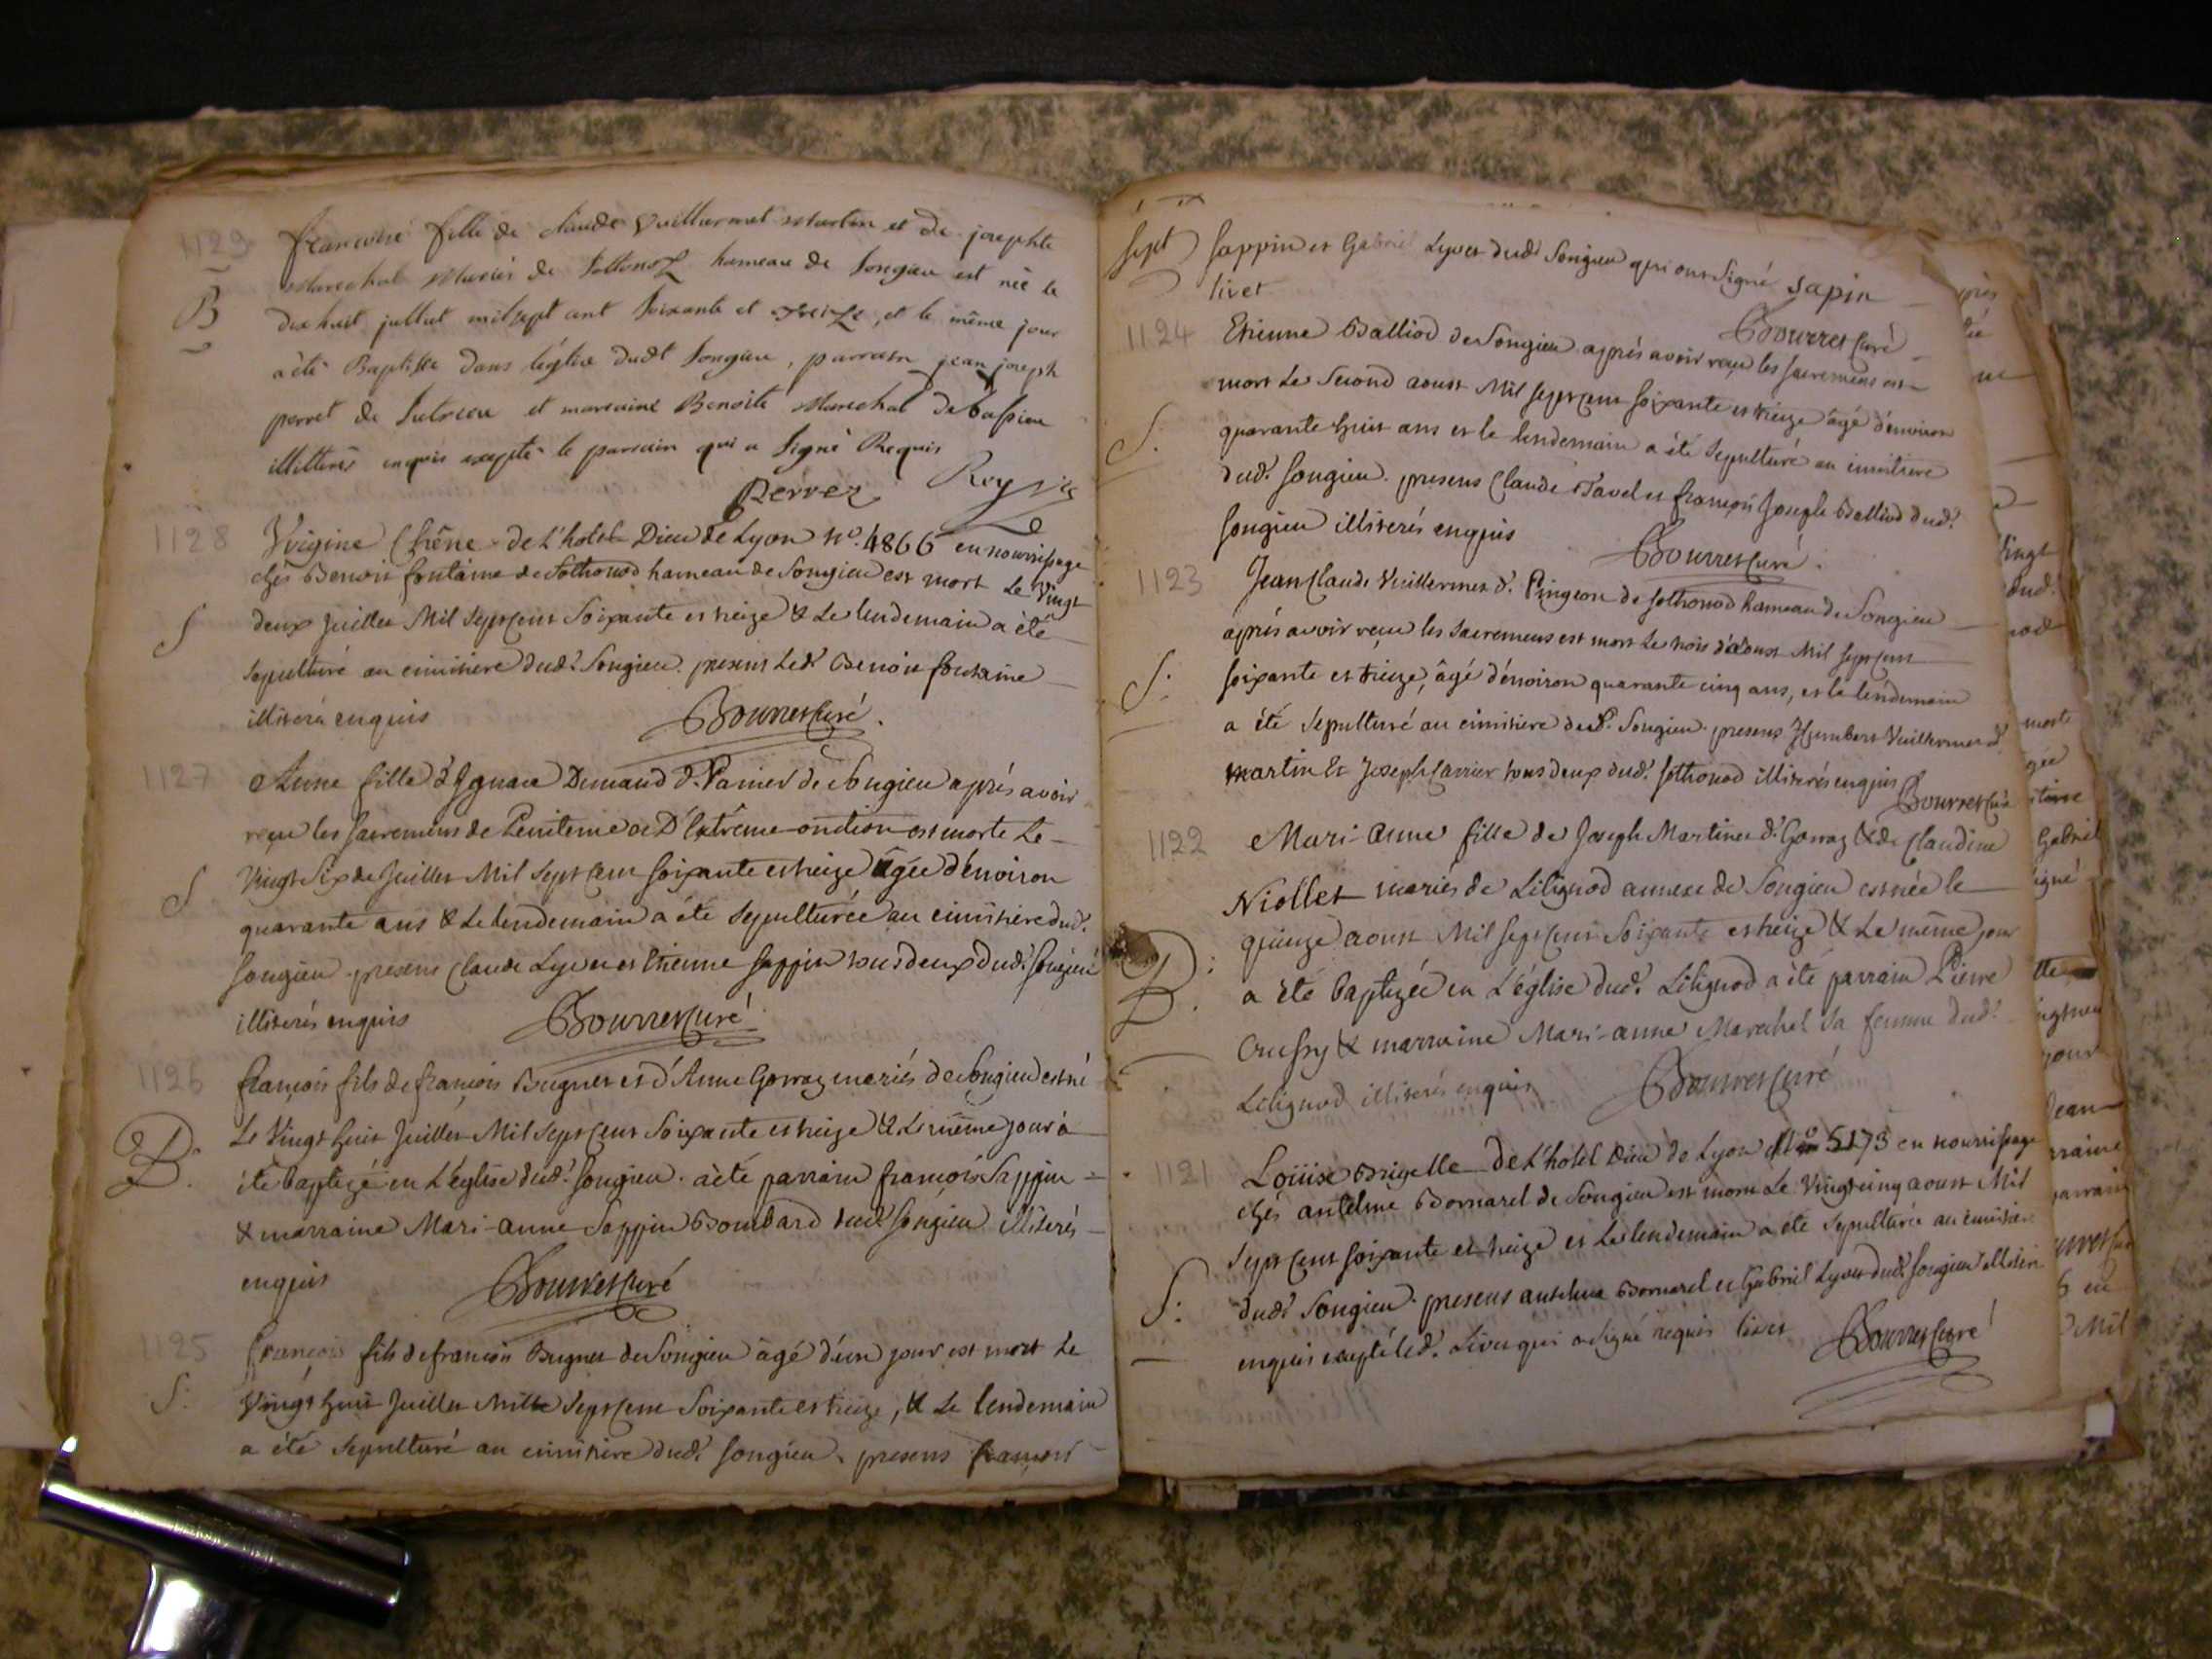 1129 francoise fille de claude Vuillermet Martin et de josephte
Marechal Mariés de Sottonod hameau de Songieu est née le
B dix huit juillet mil sept cent soixante et treize, et le même jour
a été Baptisée dans l'église dudt Songieu, parrain jean joseph
perret de Sutrieu et marraine Benoite Marechal de
illitterés enquis excepté le parrain qui a signé Requis
Perret Roy
1128 Virgine Chêne de L'hotel Dieu de Lyon N.º 4866 en nourrissage
chés Benoit fontaine de Sothonod hameau de Songieu est mort Le Vingt
S deux juillet Mil Sept Cent Soixante et treize & Le lendemain a été
sepulturé au cimitiere dud.t Songieu. presens Led.t Benoit fontaine
illiteré enquis Bourret Curé.
1127 Anne fille d'Ignace d.t Panier de Songieu après avoir
reçu les sacremens de Penitence et D'Extrême-onction est morte Le
S Vingt Six de Juillet Mil Sept Cent soixante et treize âgée d'énviron
quarante ans & Le lendemain a été sepulturée au cimitiere dud.t
Songieu. presens Claude Lyvet et Etienne Sappin tous deux dud.t Songieu
illiterés enquis Bourret Curé
1126 françois fils de françois Bugnet et d'Anne Gorraz mariés de Songieu est né
Le Vingt huit Juillet Mil Sept Cent Soixante et treize & Le même jour à
B. été baptizé en L'église dud.t Songieu. a été parrain françois Sappin
& marraine Mari-anne Sappin Bombard dud.t Songieu illiterés
enquis Bourret Curé
1125 françois fils de françois Bugnet de Songieu âgé d'un jour est mort Le
S. Vingt huit Juillet Mille Sept Cent Soixante et treize, & Le lendemain
a été sepulturé au cimitiere dud.t Songieu. presens françois
sept Sappin et Gabriel Lyvet dud.t Songieu qui ont signé sapin
livet Bourret Curé
1124 Etienne Balliod de Songieu après avoir reçu les sacremens est
mort Le Second aoust Mil sept Cent soixante et treize âgé d'énviron
S. quarante huit ans et le lendemain a été sepulturé au cimitiere
dud.t Songieu. presens Claude Tavel et françois Joseph Balliod dud.t
Songieu illiterés enquis Bourret Curé.
1123 Jean Claude Vuillermet d.t Pingeon de Sothonod hameau de Songieu
après avoir reçu les sacremens est mort Le trois d'aoust Mil sept Cent
S. soixante et treize, âgé d'énviron quarante cinq ans, et le lendemain
a été sepulturé au cimitiere dud.t Songieu. presens Humbert Vuillermet d.t
martin & Joseph Carrier tous deux dud.t Sothonod illiterés enquis Bourret Curé
1122 Mari-anne fille de Joseph Martinet d.t Gorraz & de Claudine
Niollet mariés de Lilignod annexe de Songieu est née le
quinze aoust Mil sept Cent Soixante et treize & Le même jour
B. a été baptizée en L'église dud.t Lilignod a été parrain Pierre
& marraine Mari-anne Marechal sa femme dud.t
Lilignod illiterés enquis Bourret Curé
1121 Loüise Brigelle de L'hôtel Dieu de Lyon N.º 5173 en nourrissage
chés antelme Bornarel de Songieu est morte Le Vingt cinq aoust Mil
sept Cent soixante et treize et Le lendemain a été sepulturée au cimitiere
S. dud.t Songieu. presens antelme Bornarel et Gabriel Lyvet dud.t Songieu illiteré
enquis excepté led.t Livet qui a signé requis livet Bourret Curé